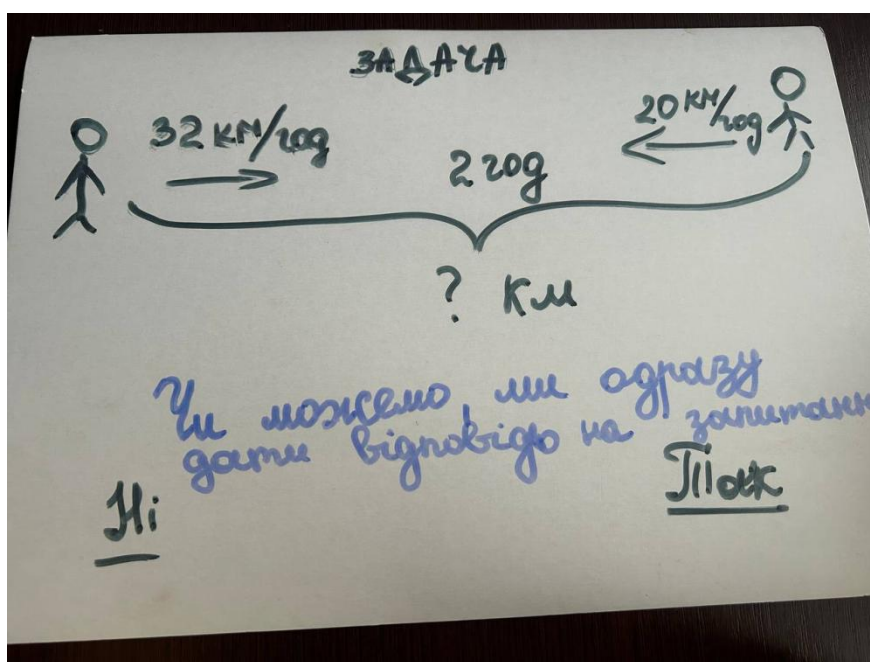 ЗАДАЧА
32 км/год
20 км/год
2 год
? км
Чи можемо ми одразу
дати відповідь на запитанн
Ні
Так